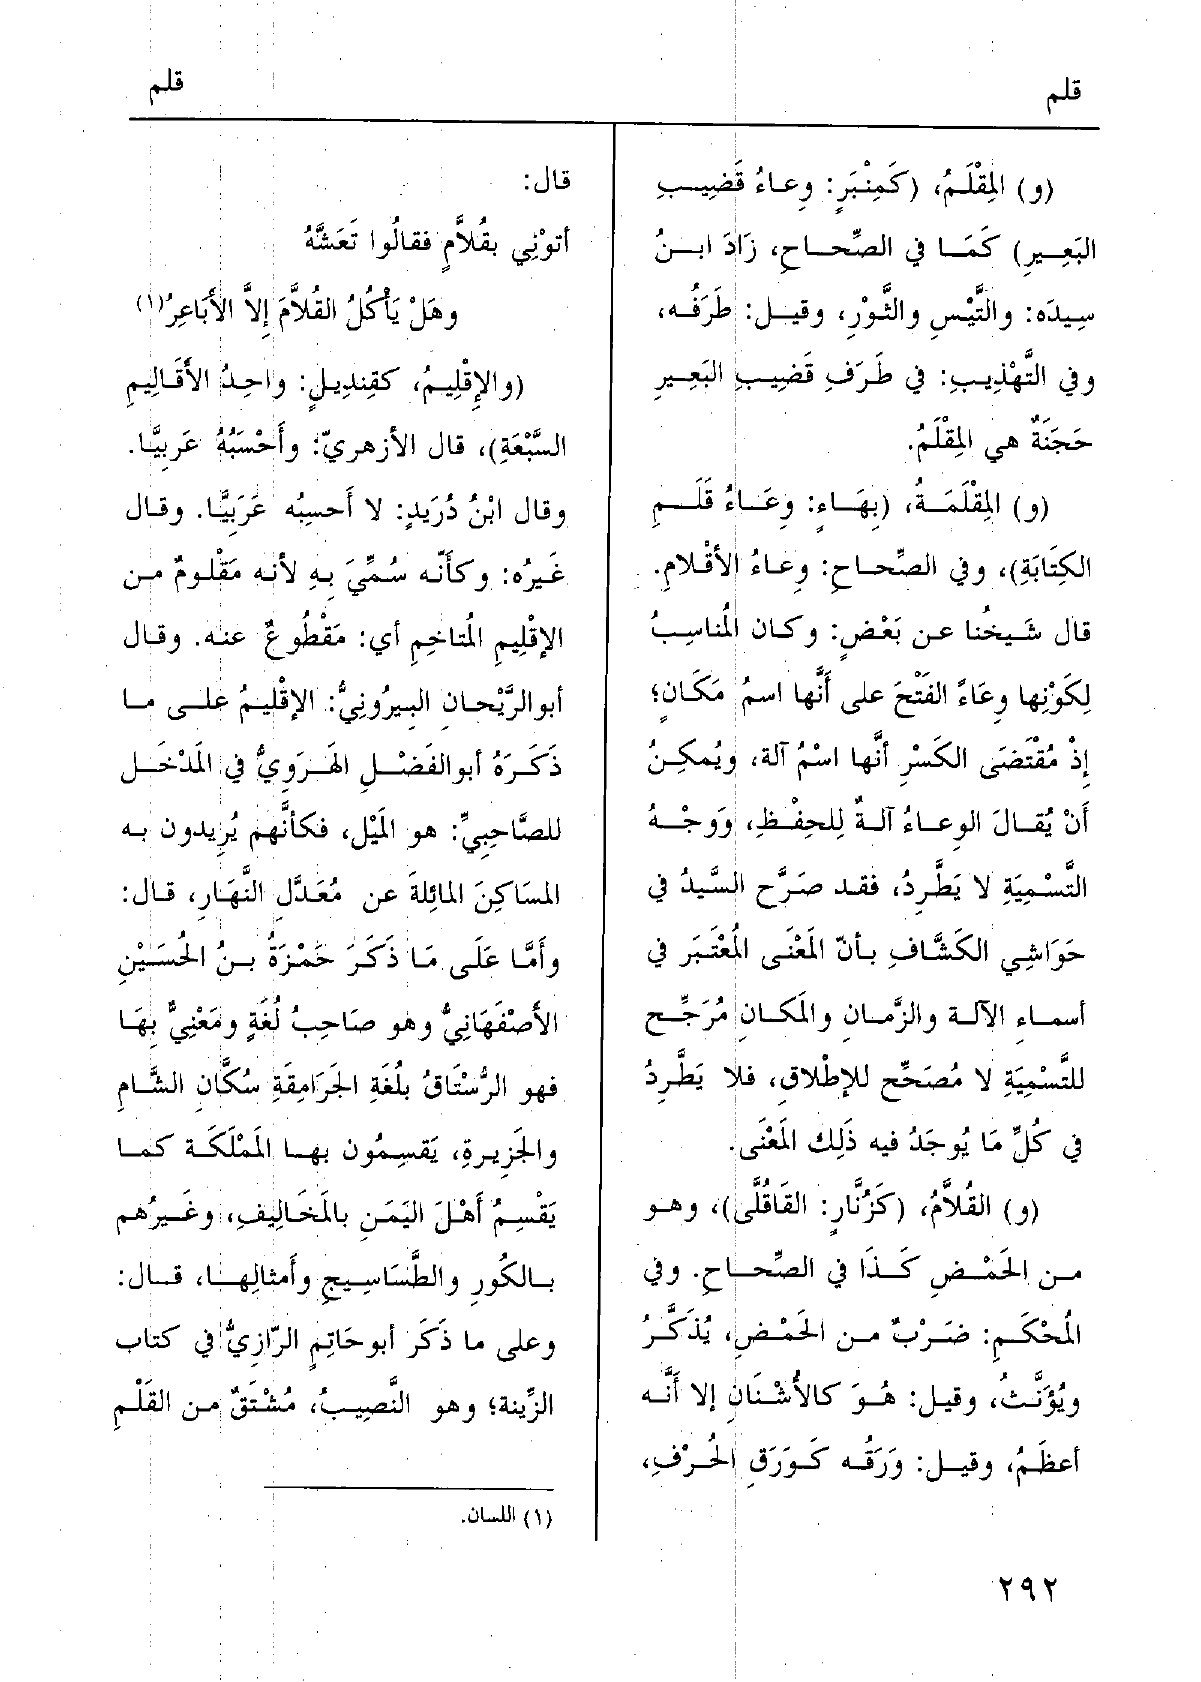 قلم
قلم
(و) المِقْلَمُ، (كَمِنْبَرٍ: وِعـاءُ قَضِيـبِ
البَعِـيرِ) كَمَـا في الصِّحـاحِ، زَادَ ابـنُ
سِيدَه: والتَّيْسِ والثَّوْرِ، وقيـل: طَرَفُـه،
وفي التَّهْذِيبِ: في طَرَفِ قَضِيبِ البَعِـيرِ
حَجَنَةٌ هي المِقْلَمُ.
(و) المِقْلَمَـةُ، (بِهَـاءٍ: وِعَـاءُ قَلَـمِ
الكِتَابَةِ)، وفي الصِّحـاحِ: وِعـاءُ الأَقْـلامِ.
قال شَـيخنا عـن بَعْـضٍ: وكـان المُناسِبُ
لِكَوْنِها وِعَاءً الفَتْحَ على أَنَّها اسمُ مَكَانٍ؛
إِذْ مُقْتَضَى الكَسْرِ أَنَّها اسْمُ آلة، ويُمكِـنُ
أَنْ يُقـالَ الوِعـاءُ آلـةٌ لِلحِفْـظِ، وَوَجْـهُ
التَّسْمِيَةِ لا يَطَّرِدُ، فقـد صَرَّح السَّيِّدُ في
حَوَاشِي الكَشَّافِ بـأنّ المَعْنَى المُعْتَبَر في
أسمـاءِ الآلـة والزَّمـان والمَكـانِ مُرَجِّـح
للتَّسْمِيَةِ لا مُصَحِّح للإطْلاقِ، فلا يَطَّرِدُ
في كُلِّ مَا يُوجَدُ فيه ذَلِك المَعْنَى.
(و) القُلاَّمُ، (كَزُنَّارٍ: القَاقُلَّى)، وهـو
مـن الحَمْـضِ كَـذَا في الصِّحـاحِ. وفي
المُحْكَـمِ: ضَرْبٌ مـن الحَمْضِ، يُذَكَّـرُ
ويُؤَنَّـثُ، وقيـل: هُـوَ كالأُشْـنَانِ إلا أَنَّـه
أعظَمُ، وقيـل: وَرَقُـه كَـوَرَقِ الحُـرْفِ،
قال:
أتَوْنِي بِقُلاَّمٍ فقالُوا تَعَشَّهُ
وهَلْ يَأكُلُ القُلاَّمَ إلاَّ الأَبَاعِرُ(١)
(والإِقْلِيمُ، كقِنديلٍ: واحِدُ الأَقَالِيمِ
السَّبْعَةِ)، قال الأزهريّ: وأَحْسَبُهُ عَرَبِيًّـا.
وقال ابْنُ دُرَيدٍ: لا أَحسِبُه عَرَبِيًّـا. وقـال
غَيرُه: وكأَنَّـه سُمِّيَ بِهِ لأنه مَقْلومٌ مـن
الإقْلِيمِ المُتاخِمِ أي: مَقْطُوعٌ عنـه. وقـال
أبوالرَّيْحـانِ البِيرُونِيُّ: الإقْلِيمُ علـى مـا
ذَكَـرَهُ أبوالفَضْـلِ الهَـرَوِيُّ في المَدْخَـلِ
للصَّاحِبيِّ: هو المَيْل، فكأنَّهم يُرِيدون بـه
المَسَاكِنَ المائِلةَ عن مُعَدَّلِ النَّهارِ، قـال:
وأَمَّـا عَلَى مَـا ذَكَـرَ حَمْزَةُ بـنُ الحُسَـيْنِ
الأَصْفَهَانِيُّ وهو صَاحِبُ لُغَةٍ ومَعْنِيٌّ بِهَـا
فهو الرُّسْتَاقُ بلُغَةِ الجَرَامِقَةِ سُكَّانِ الشَّـام
والجَزِيرةِ، يَقسِمُون بهـا المَمْلَكَـة كمـا
يَقْسِمُ أَهْلَ اليَمَنِ بالمَخَالِيفِ، وغَيرُهم
بـالكُورِ والطَّسَاسِيجِ وأمثالِهـا، قـال:
وعلى ما ذَكَر أبوحَاتِمٍ الرَّازِيُّ في كتاب
الزِّينة؛ وهو النَّصِيبُ، مُشْتَقٌّ مـن القَلْمِ
(١) اللسان.
٢٩٢